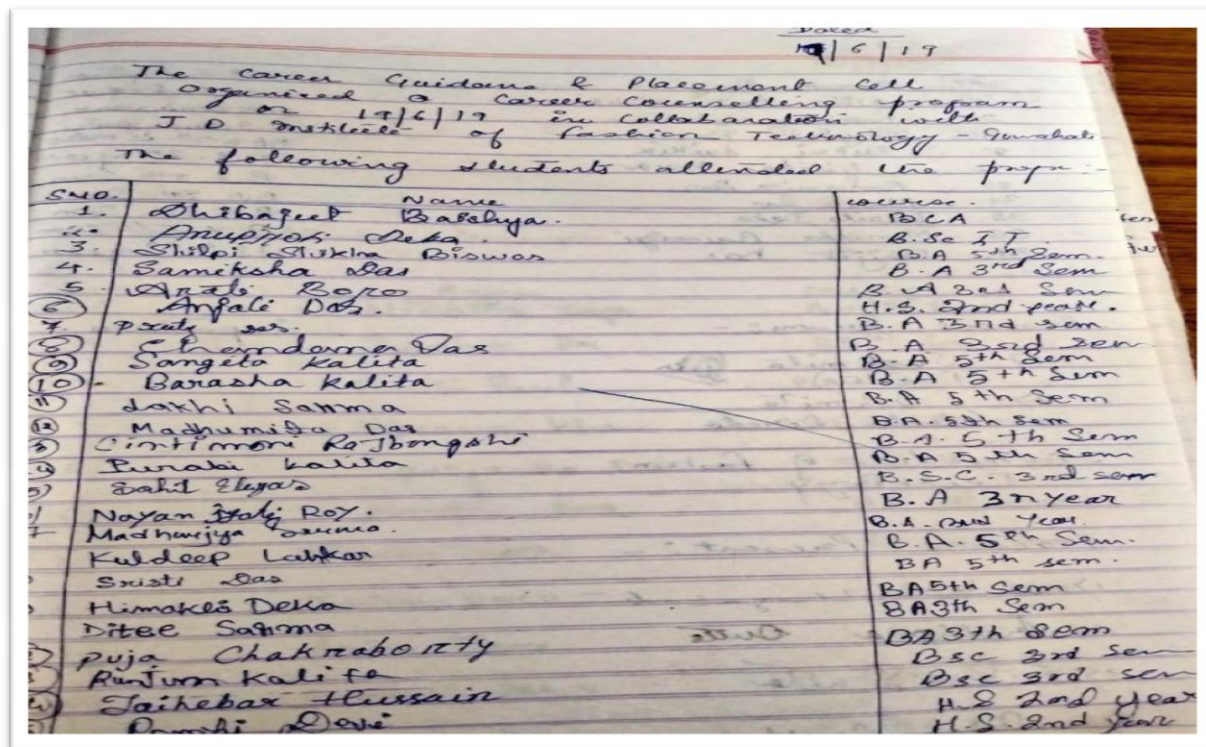 Dated
/6/19
The Career Guidance & Placement Cell
organised a career counselling program
on 19/6/19 in collabaration with
J D Institute of fashion Technology - Guwahati
The following students attended the progr:-
SNO. Name course.
1. Dhibajeet Baishya. BCA
2. Anupjyoti Deka. B.Sc IT
3. Shilpi Shikha Biswas B.A 5th Sem.
4. Samiksha Das B.A 3rd Sem
5 Arati Boro B.A 3rd Sem
6 Anjali Das. H.S. 2nd year.
7 Das. B.A 3rd sem
8 Das B.A 3rd sem
9 Sangeta Kalita B.A 5th Sem
10 - Barasha Kalita B.A 5th Sem
11 Lakhi Sarma B.A 5th Sem
12 Madhumita Das B.A. 5th Sem
3 Cintimoni Rajbongshi B.A. 5th Sem
4 Purabi Kalita B.A 5th Sem
5 Sahil B.S.C. 3rd sem
Nayan Jyoti Roy. B.A 3n year
7 B.A. year
Kuldeep Lahkar B.A. 5th Sem.
Sristi Das BA 5th sem.
Himakes Deka BA5th Sem
Ditee Sarma BA3th Sem
Puja Chakraborty BA3th Sem
Runjum Kalita Bsc 3rd sem
Taihebar Hussain Bsc 3rd sem
Devi H.S 2nd year
H.S. 2nd year